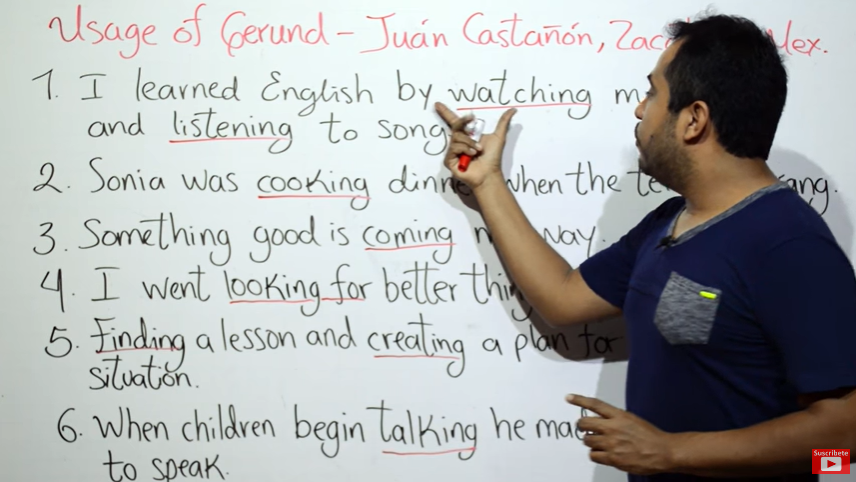 Usage of Gerund - Juán Castañón, Mex.
1. I learned English by watching
and listening to song
2. Sonia was cooking when the
3. Something good is coming way.
4. I went looking for better
5. Finding a lesson and creating a plan for
situatión.
6. When children begin talking he
to speak.
Suscríbete